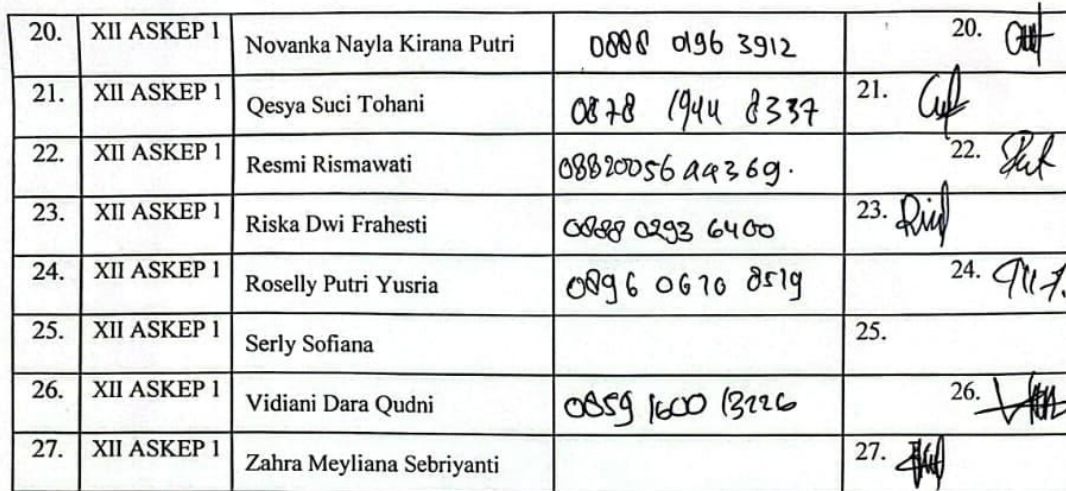 20. XII ASKEP 1 Novanka Nayla Kirana Putri 0888 0196 3912 20.
21. XII ASKEP 1 Qesya Suci Tohani 0878 1944 8337 21.
22. XII ASKEP 1 Resmi Rismawati 0882005699369. 22.
23. XII ASKEP 1 Riska Dwi Frahesti 0888 0293 6400 23.
24. XII ASKEP 1 Roselly Putri Yusria 0896 0670 8519 24.
25. XII ASKEP 1 Serly Sofiana 25.
26. XII ASKEP 1 Vidiani Dara Qudni 0859 1600 13226 26.
27. XII ASKEP 1 Zahra Meyliana Sebriyanti 27.